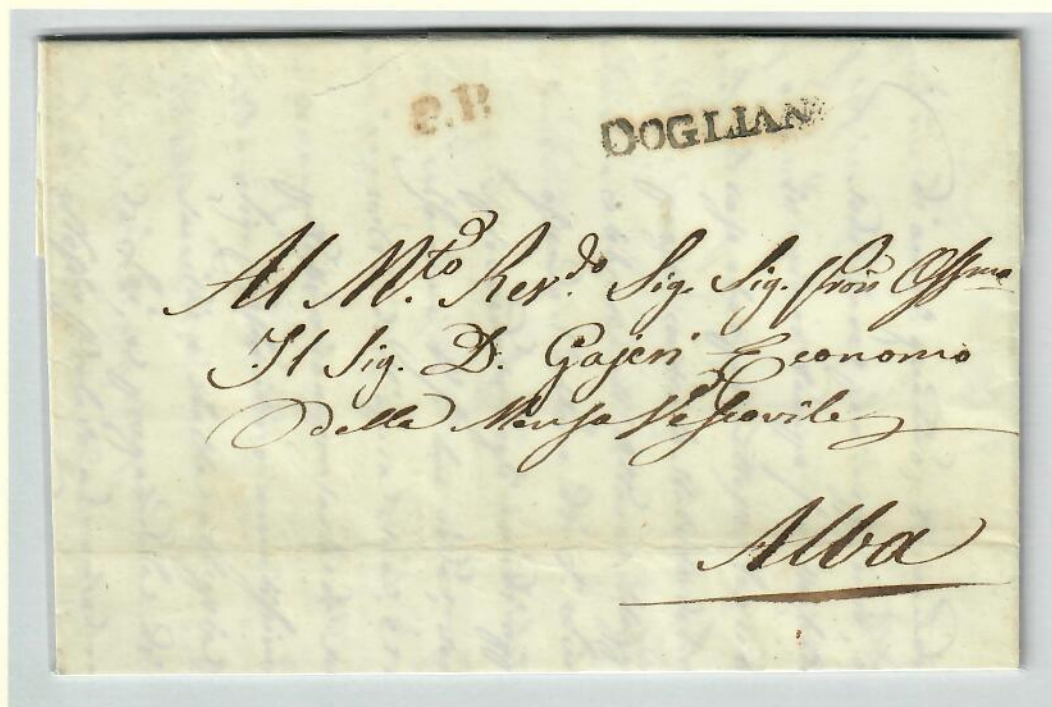 P.P.
DOGLIAN
Al M.to Rev.do Sig. Sig. Pron
Il Sig. D. Gajeri Economo
Della Mensa Vescovile
Alba